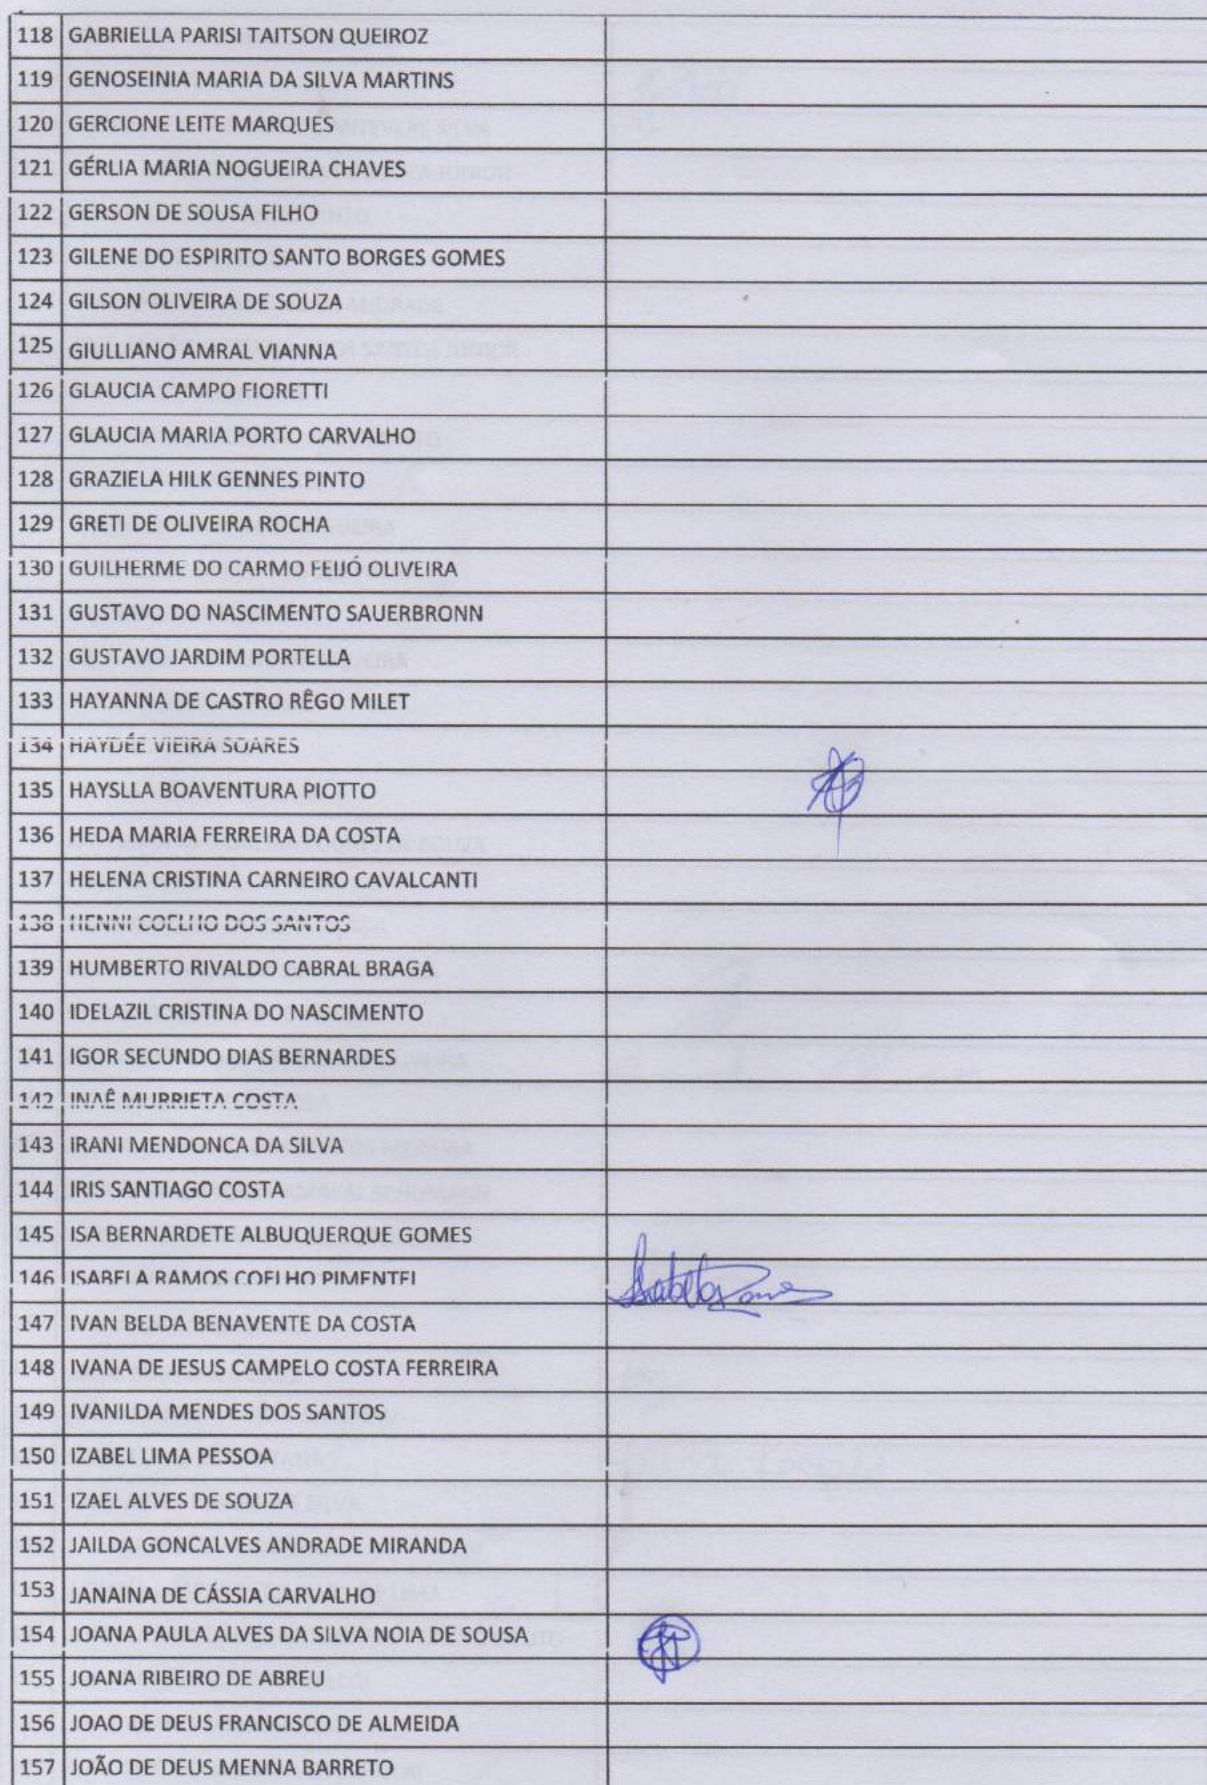 118 GABRIELLA PARISI TAITSON QUEIROZ
119 GENOSEINIA MARIA DA SILVA MARTINS
120 GERCIONE LEITE MARQUES
121 GÉRLIA MARIA NOGUEIRA CHAVES
122 GERSON DE SOUSA FILHO
123 GILENE DO ESPIRITO SANTO BORGES GOMES
124 GILSON OLIVEIRA DE SOUZA
125 GIULLIANO AMRAL VIANNA
126 GLAUCIA CAMPO FIORETTI
127 GLAUCIA MARIA PORTO CARVALHO
128 GRAZIELA HILK GENNES PINTO
129 GRETI DE OLIVEIRA ROCHA
130 GUILHERME DO CARMO FEIJÓ OLIVEIRA
131 GUSTAVO DO NASCIMENTO SAUERBRONN
132 GUSTAVO JARDIM PORTELLA
133 HAYANNA DE CASTRO RÊGO MILET
134 HAYDÉE VIEIRA SOARES
135 HAYSLLA BOAVENTURA PIOTTO
136 HEDA MARIA FERREIRA DA COSTA
137 HELENA CRISTINA CARNEIRO CAVALCANTI
138 HENNI COELHO DOS SANTOS
139 HUMBERTO RIVALDO CABRAL BRAGA
140 IDELAZIL CRISTINA DO NASCIMENTO
141 IGOR SECUNDO DIAS BERNARDES
142 INAÊ MURRIETA COSTA
143 IRANI MENDONCA DA SILVA
144 IRIS SANTIAGO COSTA
145 ISA BERNARDETE ALBUQUERQUE GOMES
146 ISABELA RAMOS COELHO PIMENTEL
147 IVAN BELDA BENAVENTE DA COSTA
148 IVANA DE JESUS CAMPELO COSTA FERREIRA
149 IVANILDA MENDES DOS SANTOS
150 IZABEL LIMA PESSOA
151 IZAEL ALVES DE SOUZA
152 JAILDA GONCALVES ANDRADE MIRANDA
153 JANAINA DE CÁSSIA CARVALHO
154 JOANA PAULA ALVES DA SILVA NOIA DE SOUSA
155 JOANA RIBEIRO DE ABREU
156 JOAO DE DEUS FRANCISCO DE ALMEIDA
157 JOÃO DE DEUS MENNA BARRETO